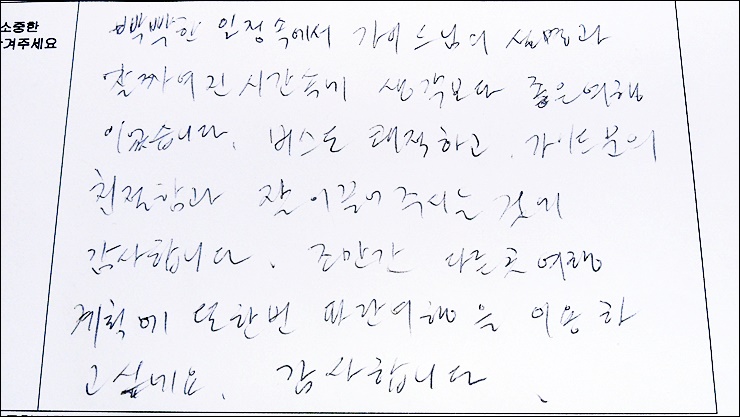 소중한
겨주세요
빡빡한 일정속에서 가이드님의 설명과
잘짜여진 시간속에 생각보다 좋은여행
이었습니다. 버스도 쾌적하고, 가이드분의
친절함과 잘 이끌어주시는 것에
감사합니다. 조만간 다른곳 여행
계획에 또한번 파란여행을 이용하
고싶네요. 감사합니다.